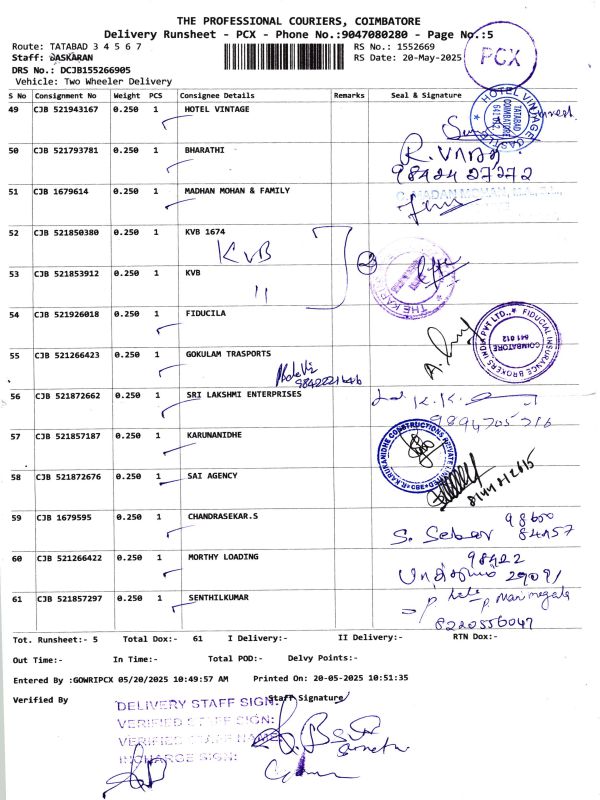 THE PROFESSIONAL COURIERS, COIMBATORE
Delivery Runsheet - PCX - Phone No.:9047080280 - Page No.:5
Route: TATABAD 3 4 5 6 7
RS No.: 1552669
Staff: BASKARAN
RS Date: 20-May-2025
PCX
DRS No.: DCJB155266905
Vehicle: Two Wheeler Delivery
S No Consignment No Weight PCS Consignee Details Remarks Seal & Signature
49 CJB 521943167 0.250 1 HOTEL VINTAGE
HOTEL VINTAGE CASTLE
TATABAD
COIMBATORE
641 012
50 CJB 521793781 0.250 1 BHARATHI
98424 27272
51 CJB 1679614 0.250 1 MADHAN MOHAN & FAMILY
52 CJB 521850380 0.250 1 KVB 1674
KVB
2
53 CJB 521853912 0.250 1 KVB
"
54 CJB 521926018 0.250 1 FIDUCILA
FIDUCIAL INSURANCE BROKERS INDIA PVT LTD.,
COIMBATORE
641 012
55 CJB 521266423 0.250 1 GOKULAM TRASPORTS
56 CJB 521872662 0.250 1 SRI LAKSHMI ENTERPRISES
9894705716
57 CJB 521857187 0.250 1 KARUNANIDHE
58 CJB 521872676 0.250 1 SAI AGENCY
59 CJB 1679595 1 0.250 1 CHANDRASEKAR.S
S. Sekar 98600
84157
60 CJB 521266422 0.250 1 MORTHY LOADING
98422
29091
61 CJB 521857297 0.250 1 SENTHILKUMAR
8220556047
Tot. Runsheet:- 5 Total Dox:- 61 I Delivery:- II Delivery:- RTN Dox:-
Out Time:- In Time:- Total POD:- Delvy Points:-
Entered By :GOWRIPCX 05/20/2025 10:49:57 AM Printed On: 20-05-2025 10:51:35
Verified By Staff Signature
DELIVERY STAFF SIGN:
VERIFIED STAFF SIGN:
VERIFIED STAFF NAME:
INCHARGE SIGN: